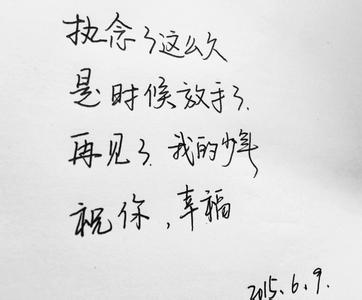 执念了这么久
是时候放手了.
再见了.我的少年
祝你,幸福
2015.6.9.